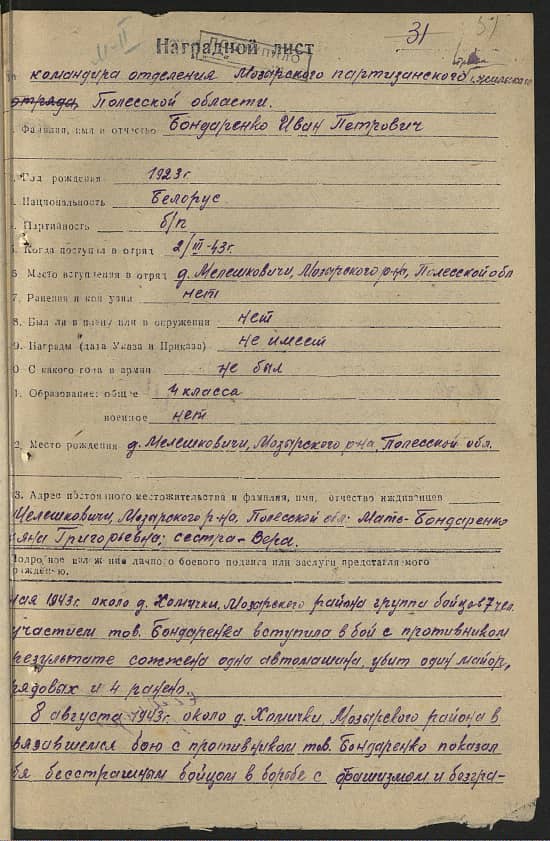 31
Наградной лист
командира отделения Мозарского партизанского
отряда, Полесской области.
Фамилия, имя и отчество Бондаренко Иван Петрович
Год рождения 1923 г
Национальность Белорус
Партийность б/п
Когда поступил в отряд 2/III-43 г.
6 Место вступления в отряд д. Мелешковичи, Мозарского р-на, Полесской обл
7. Ранения и кон узии нет
8. Был ли в плену или в окружении нет
9. Награды (дата Указа и Приказа) не имеет
0 С какого года в армии не был
1. Образование: общее 4 класса
военное нет
2. Место рождения д. Мелешковичи, Мозырского р-на, Полесской обл.
3. Адрес постоянного местожительства и фамилия, имя, отчество иждивенцев
Мелешковичи, Мозарского р-на, Полесской обл. Мать-Бондаренко
яна Григорьевна; сестра-Вера.
Подробное изложение личного боевого подвига или заслуги представляемого
рждению.
мая 1943 г. около д. Хомички, Мозарского района группа бойцов 7 чел.
участием тов. Бондаренка вступила в бой с противником
результате сожжена одна автомашина, убит один майор,
рядовых и 4 ранено.
8 августа 1943 г. около д. Хомички, Мозырского района в
вязавшемся бою с противником тов. Бондаренко показал
бя бесстрашным бойцом в борьбе с фашизмом и безгра-